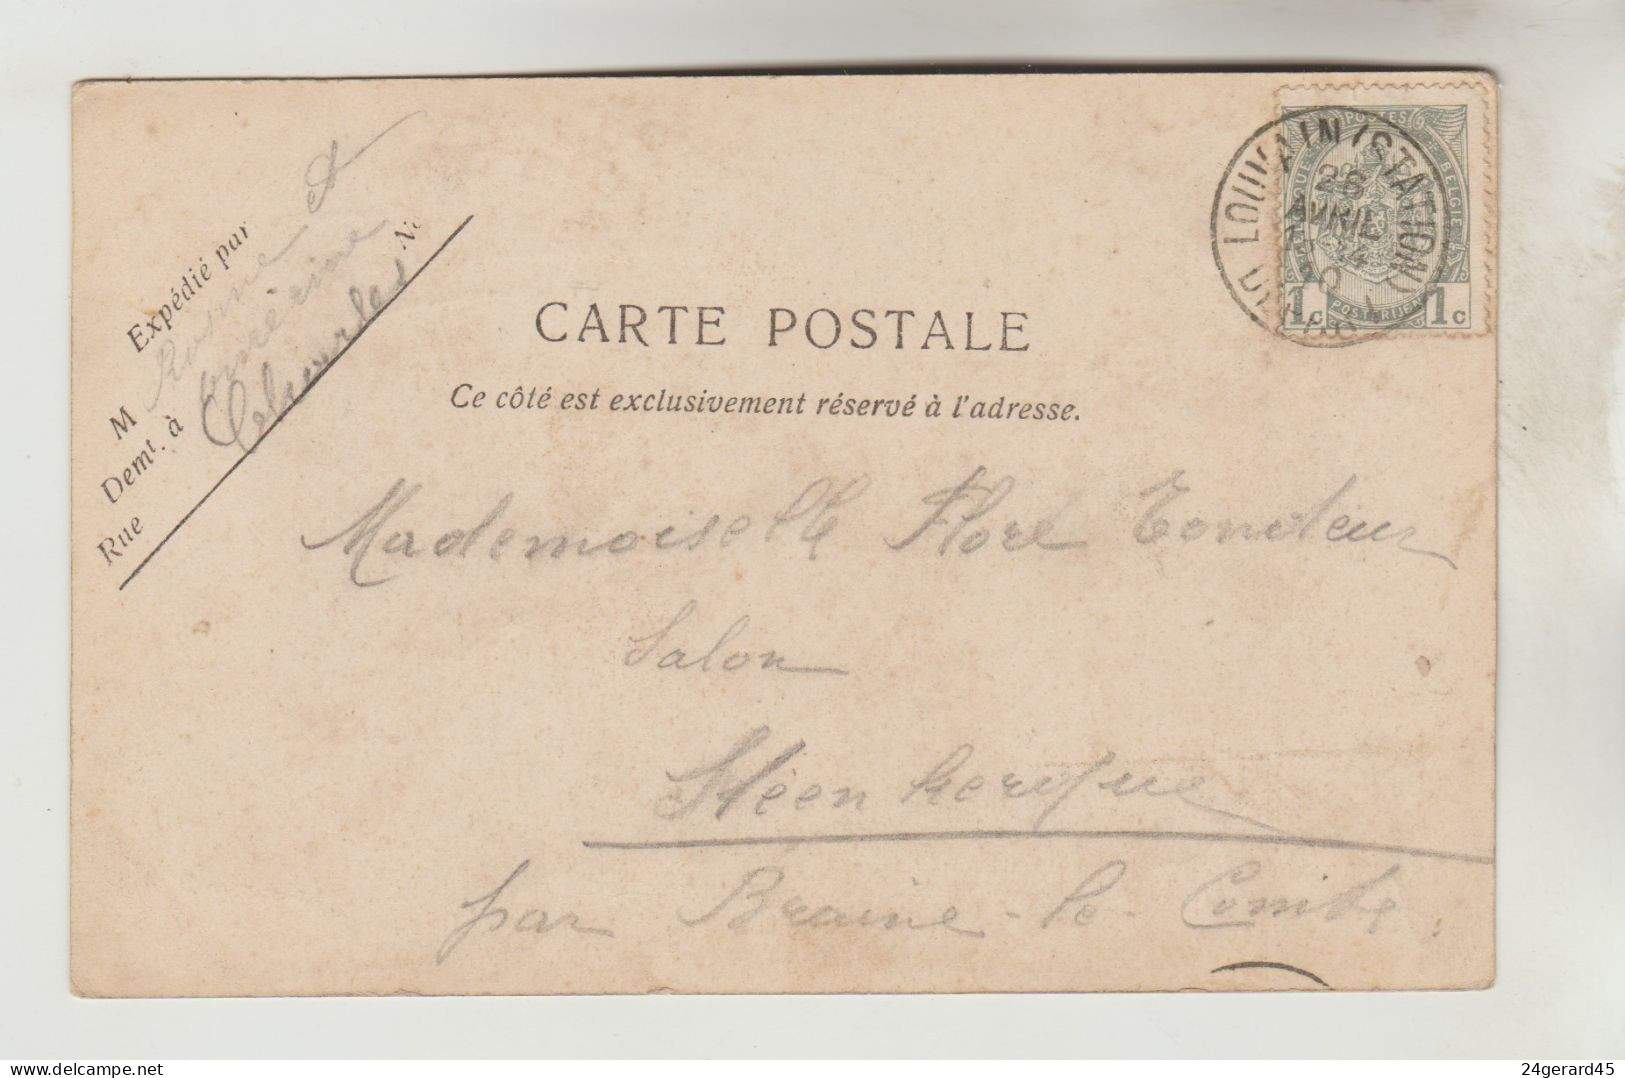 Expédié par
M
Demt. à
Rue
CARTE POSTALE
Ce côté est exclusivement réservé à l'adresse.
LOUVAIN (STATION)
AVRIL
POSTES
BELGIQUE
BELGIË
POSTERIJEN
1c 1c
Mademoiselle Flore Tondeur
Salon
Steenkerque
par Braine-le-Comte
24gerard45